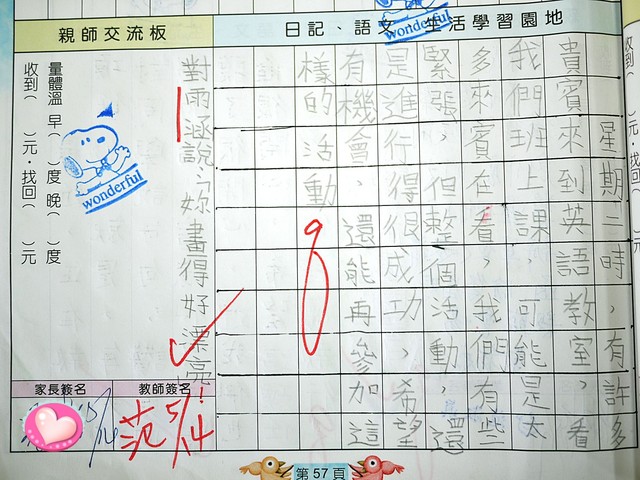 日記、語文 生活學習園地
wonderful
星期二時,有許多
貴賓來到英語教室,看
我們班上課,可能是太
多來賓在看,我們有些
緊張,但整個活動還
是進行得很成功,希望
有機會,還能再參加這
樣的活動。
親師交流板
對雨涵說:妳畫得好漂亮!
wonderful
量體溫 早( )度 晚( )度
收到( )元·找回( )元
家長簽名
教師簽名
范 5/14
第57頁